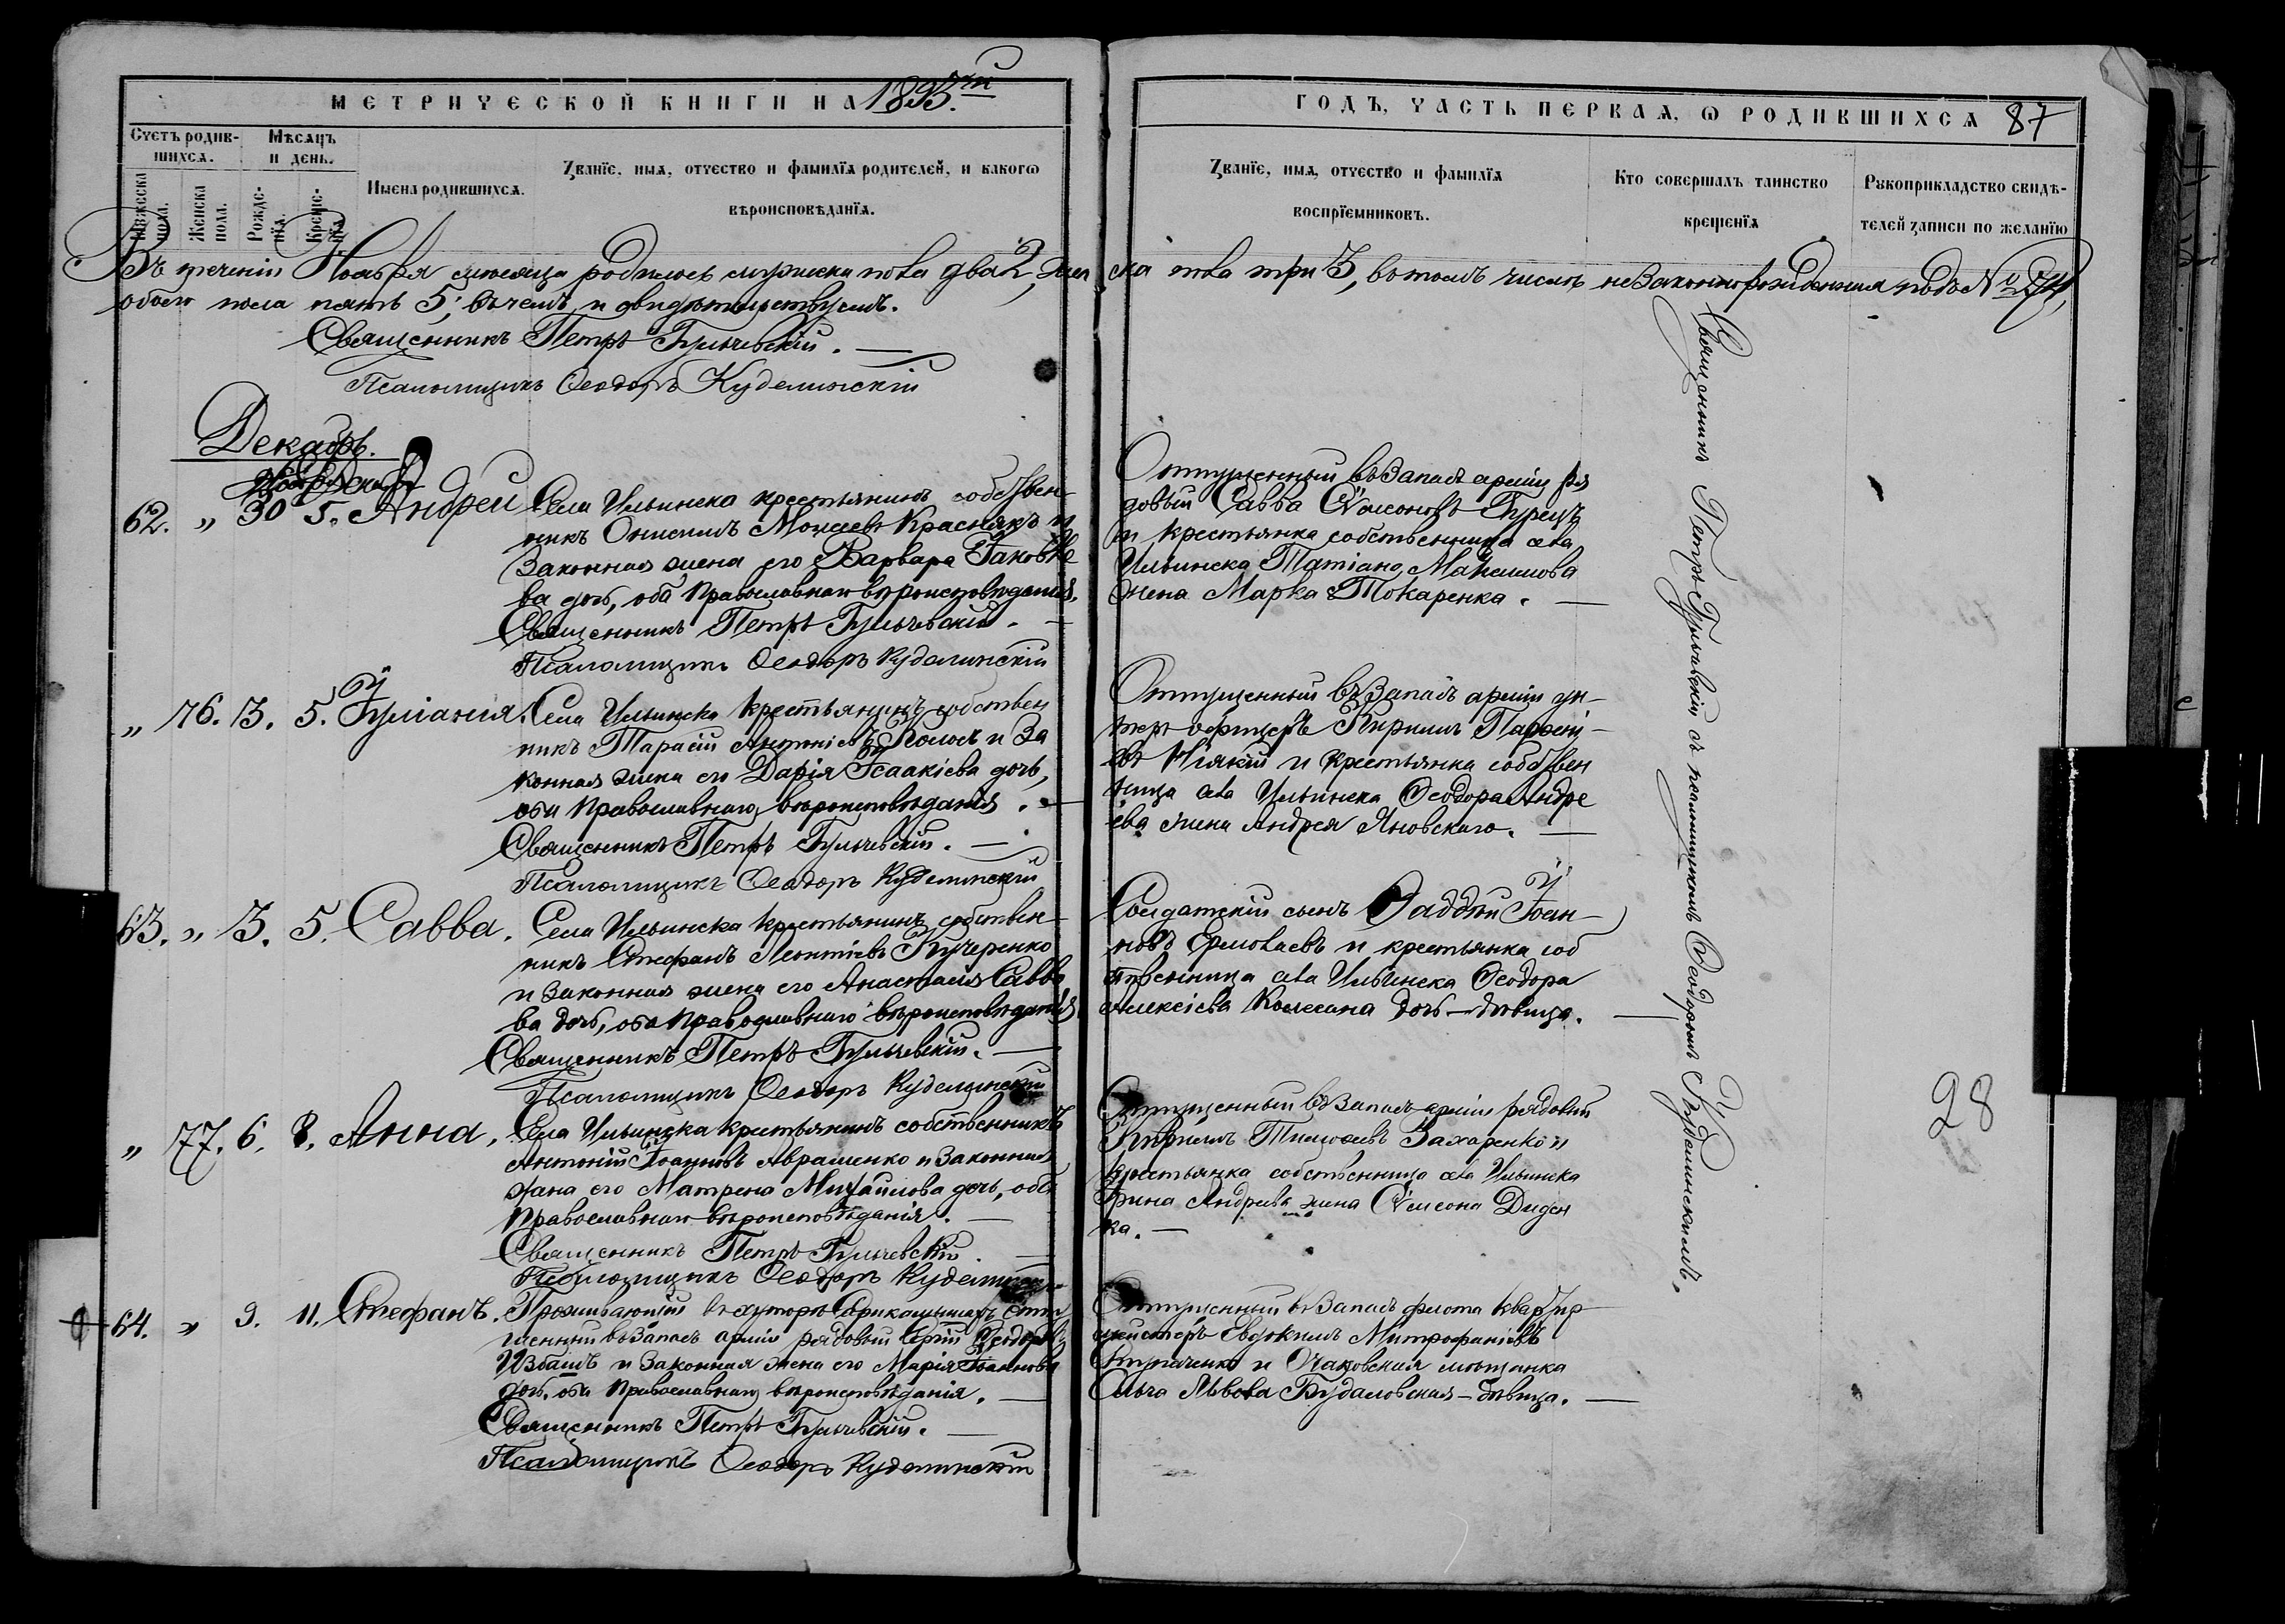 МЕТРИЧЕСКОЙ КНИГИ НА 1893.ій
ГОДЪ, ЧАСТЬ ПЕРВАЯ, Ѡ РОДИВШИХСЯ 87
Счетъ родив-
шихся.
Мѣсяцъ
и день.
Мужеска
пола.
Женска
пола.
Рожде-
нїя.
Креще-
нїя.
Имена родившихся.
Званїе, имя, отчество и фамилїя родителей, и какогѡ
вѣроисповѣданїя.
Званїе, имя, отчество и фамилїя
воспрїемниковъ.
Кто совершалъ таинство
крещенїя
Рукоприкладство свидѣ-
телей записи по желанїю
Въ теченіи Ноября мѣсяца родилось мужеска пола два 2, жен
ска пола три 3, въ томъ числѣ незаконнорожденная подъ № 74,
обоего пола пять 5; въ чемъ и свидѣтельствуемъ.
Священникъ Петръ Гульчевскій.
Псаломщикъ Ѳеодоръ Куделинскій
Декабрь.
62. „ 30 5. Андрей
Села Ильинска крестьянинъ собствен-
никъ Онисимъ Моисеевъ Краснякъ и
законная жена его Варвара Іаковле
ва дочь, оба православнаго вѣроисповѣданія.
Священникъ Петръ Гульчевскій.
Псаломщикъ Ѳеодоръ Куделинскій
Отпущенный въ запасъ арміи ря
довый Савва Сѵмеоновъ Гурецъ
и крестьянка собственница села
Ильинска Татіана Максимова
жена Марка Токаренка.
„ 76. 3. 5. Іуліанія.
Села Ильинска крестьянинъ собствен
никъ Тарасій Антоніевъ Колосъ и за
конная жена его Дарія Ісаакіева дочь,
оба православнаго вѣроисповѣданія.
Священникъ Петръ Гульчевскій.
Псаломщикъ Ѳеодоръ Куделинскій
Отпущенный въ запасъ арміи ун-
теръ-офицеръ Кириллъ
и крестьянка собствен
ница села Ильинска Ѳеодора Андре
ева жена Андрея Яновскаго.
63. „ 3. 5. Савва.
Села Ильинска крестьянинъ собствен-
никъ Стефанъ Леонтіевъ Кучеренко
и законная жена его Анастасія Савво
ва дочь, оба православнаго вѣроисповѣданія
Священникъ Петръ Гульчевскій.
Псаломщикъ Ѳеодоръ Куделинскій
Солдатскій сынъ Ѳаддей Іоан-
новъ Ермолаевъ и крестьянка соб
ственница села Ильинска Ѳеодора
Алексіева дочь-дѣвица.
„ 77. 6. 8. Анна.
Села Ильинска крестьянинъ собственникъ
Антоній Іоанновъ Авраменко и законная
жена его Матрена Михайлова дочь, оба
православнаго вѣроисповѣданія.
Священникъ Петръ Гульчевскій.
Псаломщикъ Ѳеодоръ Куделинскій
Отпущенный въ запасъ арміи рядовый
Тимоѳеевъ Захаренко и
крестьянка собственница села Ильинска
Ірина Андреева жена Сѵмеона Диден
ка.
28
64. „ 9. 11. Стефанъ.
Проживающій въ хуторѣ отпу
щенный въ запасъ арміи рядовый Сергій Ѳеодоровъ
Избашъ и законная жена его Марія Іоаннова
дочь, оба православнаго вѣроисповѣданія.
Священникъ Петръ Гульчевскій.
Псаломщикъ Ѳеодоръ Куделинскій
Отпущенный въ запасъ флота квартир
мейстеръ Евдокимъ Митрофаніевъ
Ткаченко и Очаковская мѣщанка
Ольга Львова Будаловская-дѣвица.
Священникъ Петръ Гульчевскій съ псаломщикомъ Ѳеодоромъ Куделинскимъ.